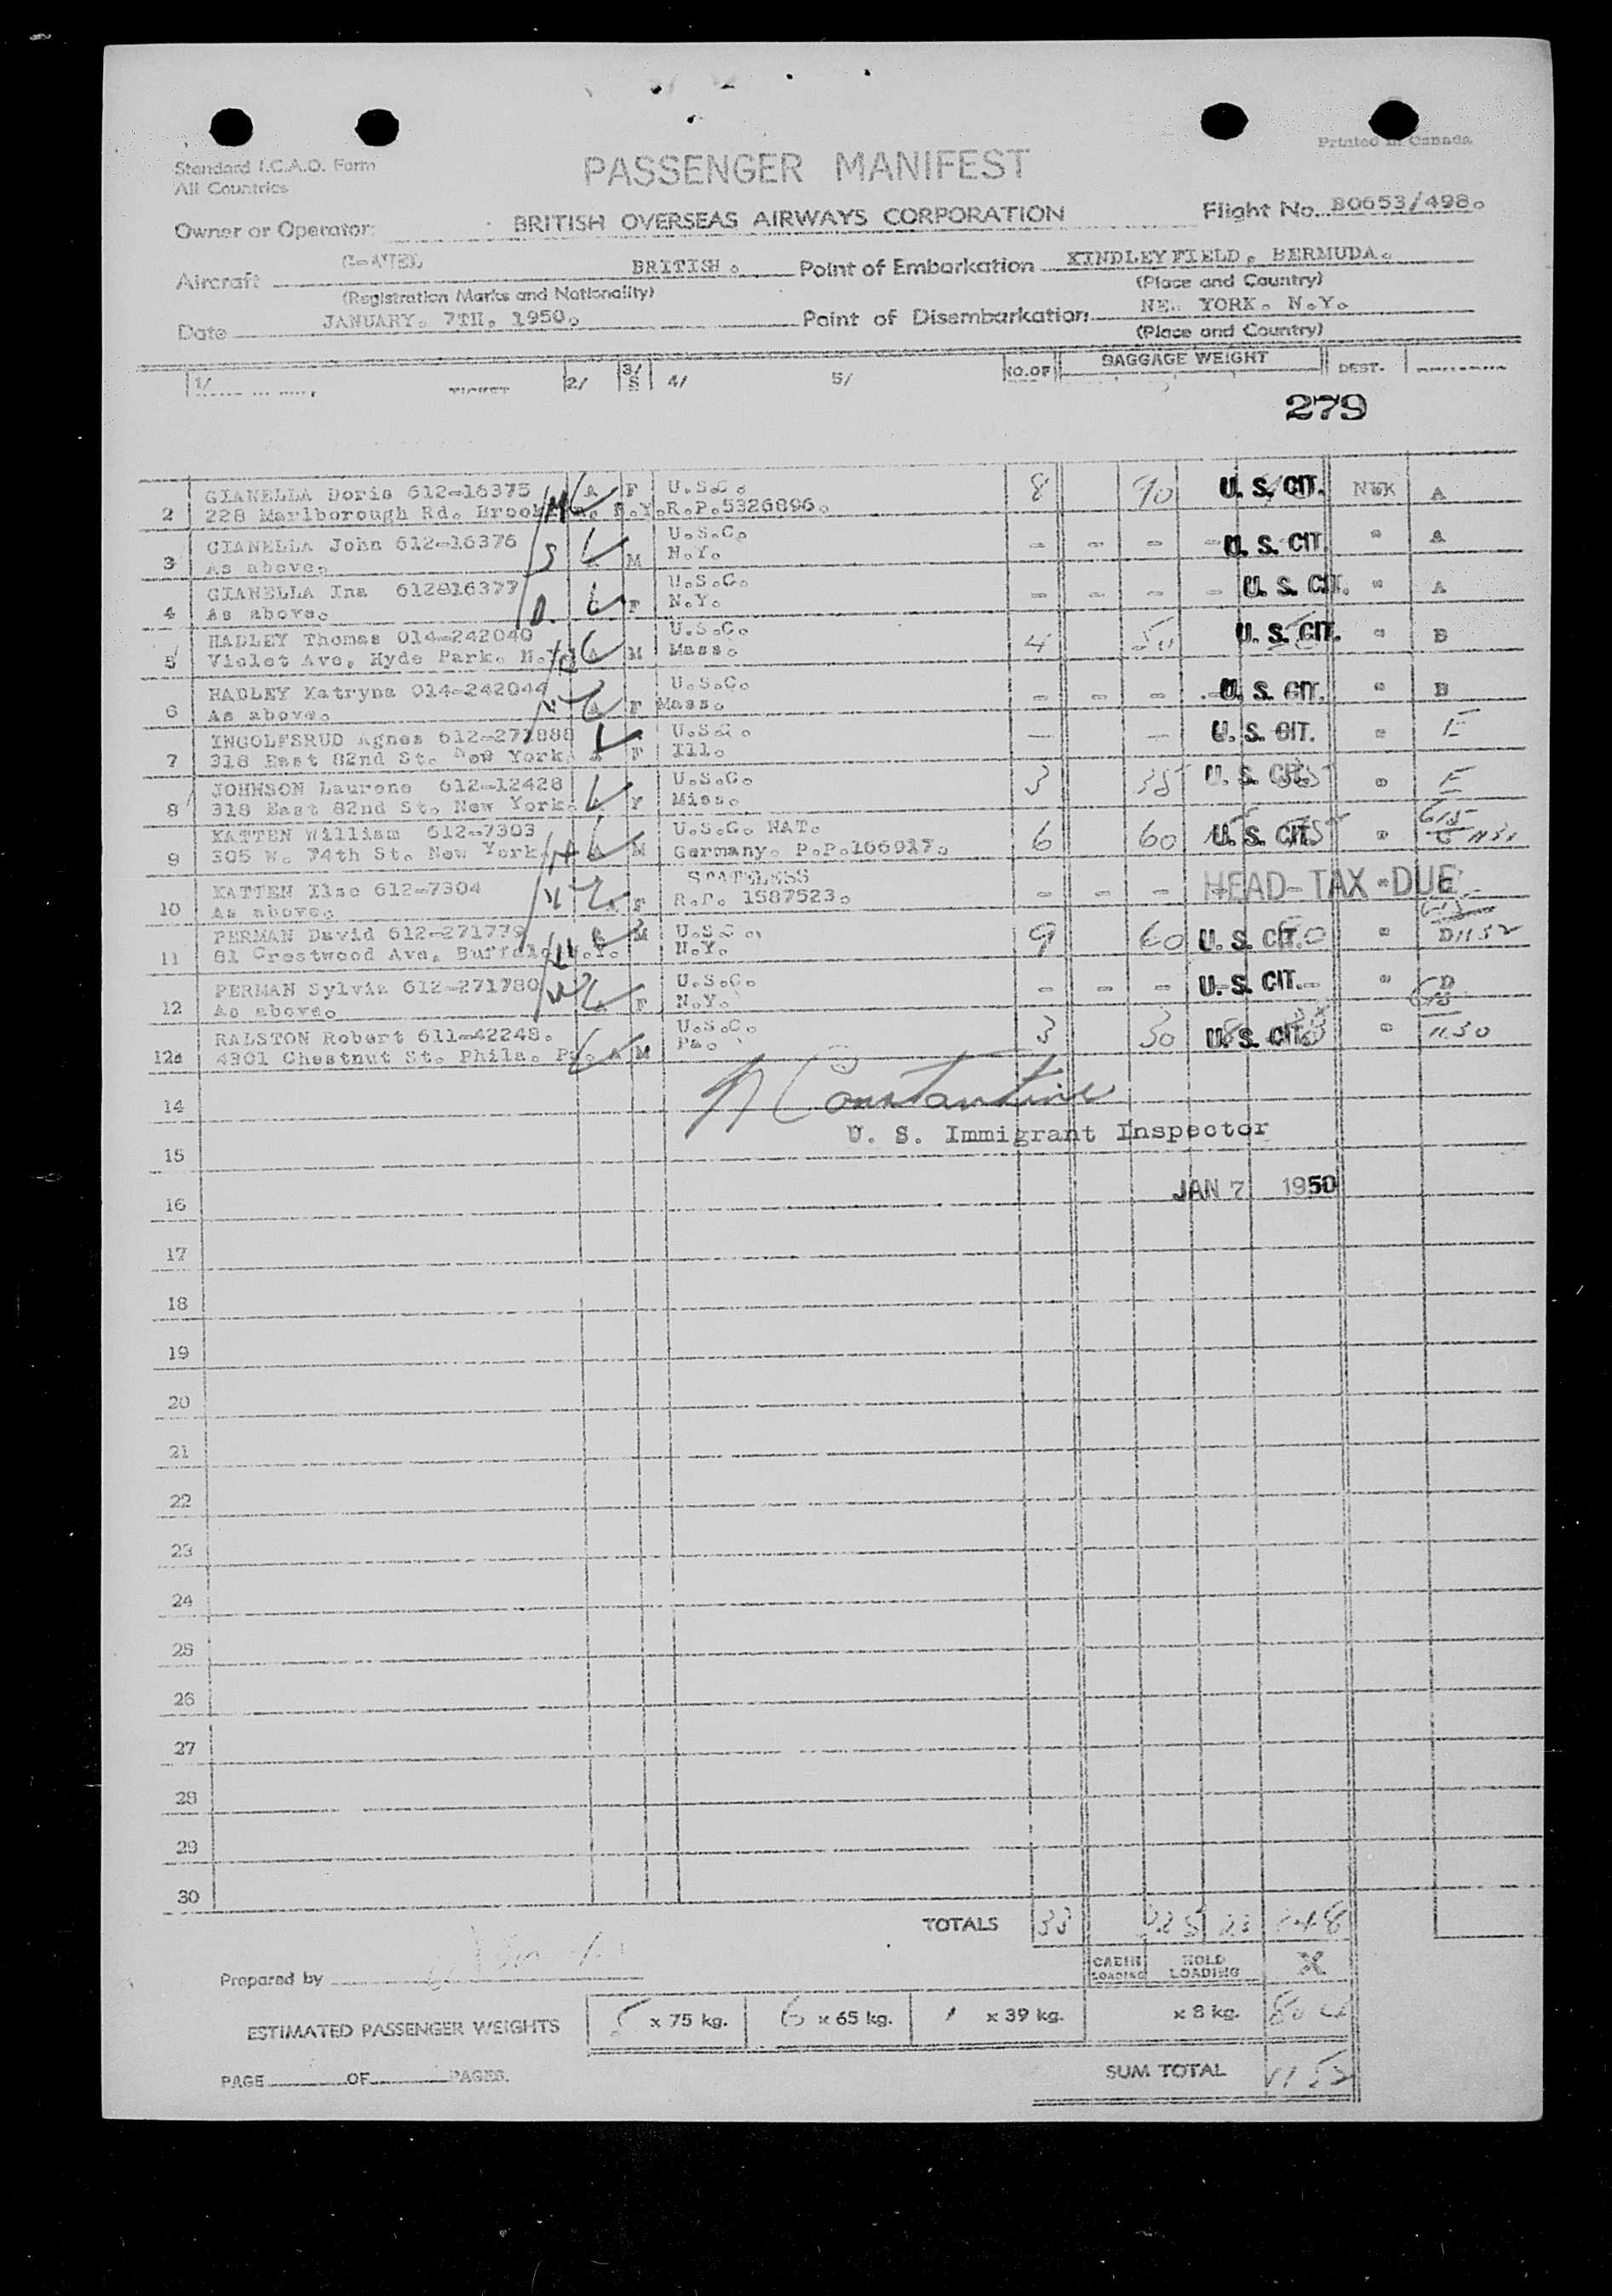 Printed in Canada
Standard I.C.A.O. Form
All Countries
PASSENGER MANIFEST
Owner or Operator: BRITISH OVERSEAS AIRWAYS CORPORATION Flight No. BO653/498.
Aircraft BRITISH. Point of Embarkation KINDLEY FIELD, BERMUDA.
(Registration Marks and Nationality) (Place and Country)
Date JANUARY. 7TH. 1950. Point of Disembarkation NEW YORK. N.Y.
(Place and Country)
1/ TICKET 2/ 3/ S 4/ 5/ NO.OF BAGGAGE WEIGHT DEST.
279
2 GIANELLA Doris 612-16375 A F U.S.C. 8 90 U. S. CIT. NWK A
228 Marlborough Rd. N.Y. R.P.5326896.
3 GIANELLA John 612-16376 M U.S.C. - - - - U. S. CIT. " A
As above. N.Y.
4 GIANELLA Ina 612-16377 F U.S.C. - - - - U. S. CIT. " A
As above. N.Y.
5 HADLEY Thomas 014-242040 A M U.S.C. 4 50 U. S. CIT. " B
Violet Ave, Hyde Park. N.Y. Mass.
6 HADLEY Katryna 014-242044 A F U.S.C. - - - - U. S. CIT. " B
As above. Mass.
7 INGOLFSRUD Agnes 612-271888 A F U.S.C. - - U. S. CIT. " E
318 East 82nd St. New York. Ill.
8 JOHNSON Laurene 612-12428 F U.S.C. 3 35 U. S. CIT. " E
318 East 82nd St. New York. Miss.
9 KATTEN William 612-7303 A M U.S.C. NAT. 6 60 U. S. CIT. "
305 W. 74th St. New York. Germany. P.P.166917.
10 KATTEN Ilse 612-7304 F STATELESS - - - HEAD-TAX-DUE
As above. R.P. 1587523.
11 PERMAN David 612-271779 A M U.S.C. 9 60 U. S. CIT. " D 1152
81 Crestwood Ave, Buffalo N.Y. N.Y.
12 PERMAN Sylvia 612-271780 F U.S.C. - - - U. S. CIT. " D
As above. N.Y.
12a RALSTON Robert 611-42248. A M U.S.C. 3 30 U. S. CIT. " 1130
4301 Chestnut St. Phila. Pa. Pa.
N Constantine
14
U. S. Immigrant Inspector
15
JAN 7 1950
16
17
18
19
20
21
22
23
24
25
26
27
28
29
30
TOTALS 33 325 23 348
Prepared by CABIN LOADING HOLD LOADING X
ESTIMATED PASSENGER WEIGHTS 5 x 75 kg. 6 x 65 kg. 1 x 39 kg. x 8 kg. 804
PAGE OF PAGES. SUM TOTAL 1152